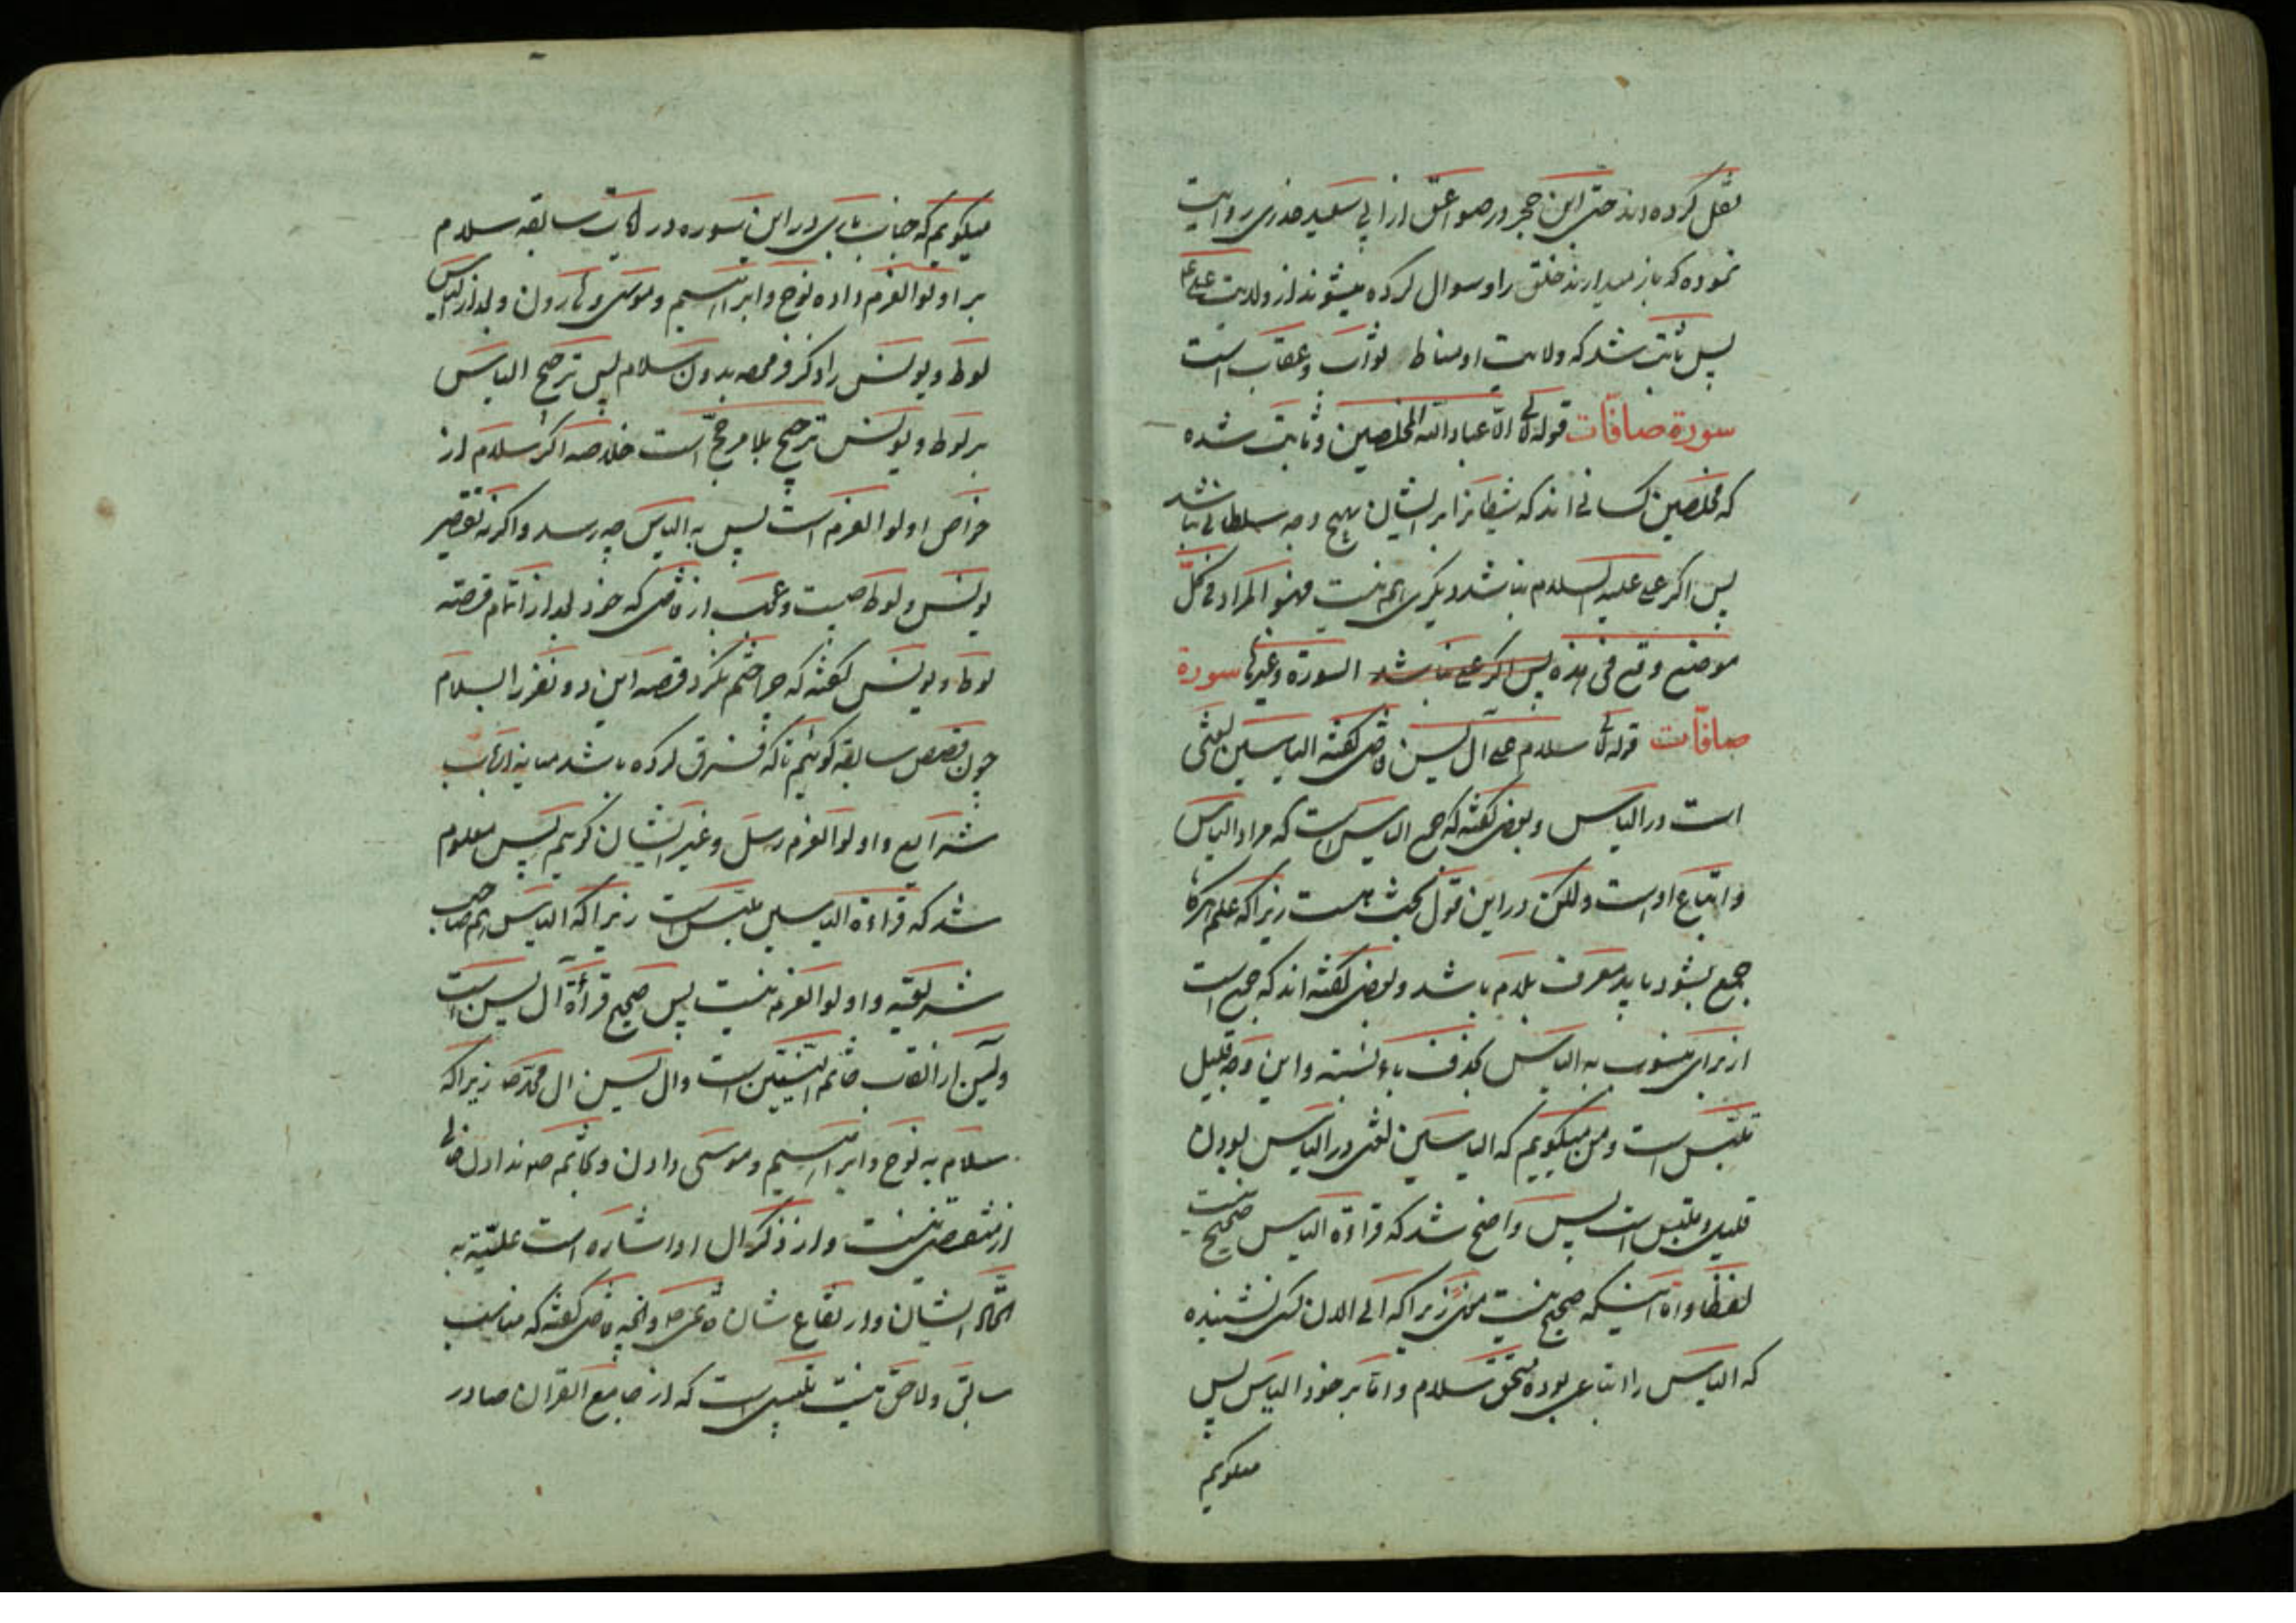 نقل کرده‌اند حتی ابن حجر در صواعق از ابی سعید خدری روایت
نموده که باز میدارند خلق را و سوال کرده میشوند از ولایت علی ع
پس ثابت شد که ولایت او مناط ثواب و عقاب است
سورة صافّات قوله تع الّا عباد الله المخلصین و ثابت شده
که مخلصین کسانی اند که شیطانرا بر ایشان بهیچ وجه سلطانی نباشد
پس اگر علی علیه السلام نباشد دیگری هم نیست فهو المراد فی کلّ
موضع وقع فی هذه پس اگر علی نباشد السورة وغیرها سورة
صافّات قوله تع سلام علی آل یسین قاضی گفته الیاسین لغتی
است در الیاس و بعضی گفته که جمع الیاس است که مراد الیاس
و اتباع اوست ولکن در این قول بحث هست زیرا که علم هرگاه
جمع بشود باید معرف بلام باشد و بعضی گفته اند که جمع است
از برای منسوب به الیاس بحذف یاء نسبه و این وجه قلیل
ملتبس است و من میگویم که الیاسین لغتی در الیاس بودن
قلیل و ملتبس است پس واضح شد که قراءة الیاس صحیح نیست
لفظا و اما اینکه صحیح نیست معنی زیرا که الی الان کسی نشنیده
که الیاس را اتباعی بوده مستحق سلام و امّا بر خود الیاس پس
میگویم
میگویم که جناب باری در این سوره در آیات سابقه سلام
بر اولوا العزم داده نوح و ابراهیم و موسی و هارون و بعد از الیاس
لوط و یونس را ذکر فرموده بدون سلام پس ترجیح الیاس
بر لوط و یونس ترجیح بلا مرجّح است خلاصه اگر سلام از
خواص اولوا العزم است پس به الیاس چه رسد و اگر نه تقصیر
یونس و لوط چیست و عجب از قاضی که خود بعد از اتمام قصّه
لوط و یونس گفته که چرا ختم نکرد قصه این دو نفر را بسلام
چون قصص سابقه گوئیم تا که فرق کرده باشد میانه ارباب
شرایع و اولوا العزم رسل و غیر ایشان گوئیم پس معلوم
شد که قراءة الیاسین ملتبس است زیرا که الیاس هم صاحب
شریعه و اولوا العزم نیست پس صحیح قراءة آل یسین است
و یسین از القاب خاتم النبیین است و ال یسین ال محمد ص زیرا که
سلام به نوح و ابراهیم و موسی دادن و بخاتم ص ندادن خالی
از نقصی نیست و از ذکر ال او اشاره است علیّه به
اتحاد ایشان و ارتفاع شان و آنچه قاضی گفته که مناسب
سابق و لاحق نیست تلبیسی است که از جامع القران صادر